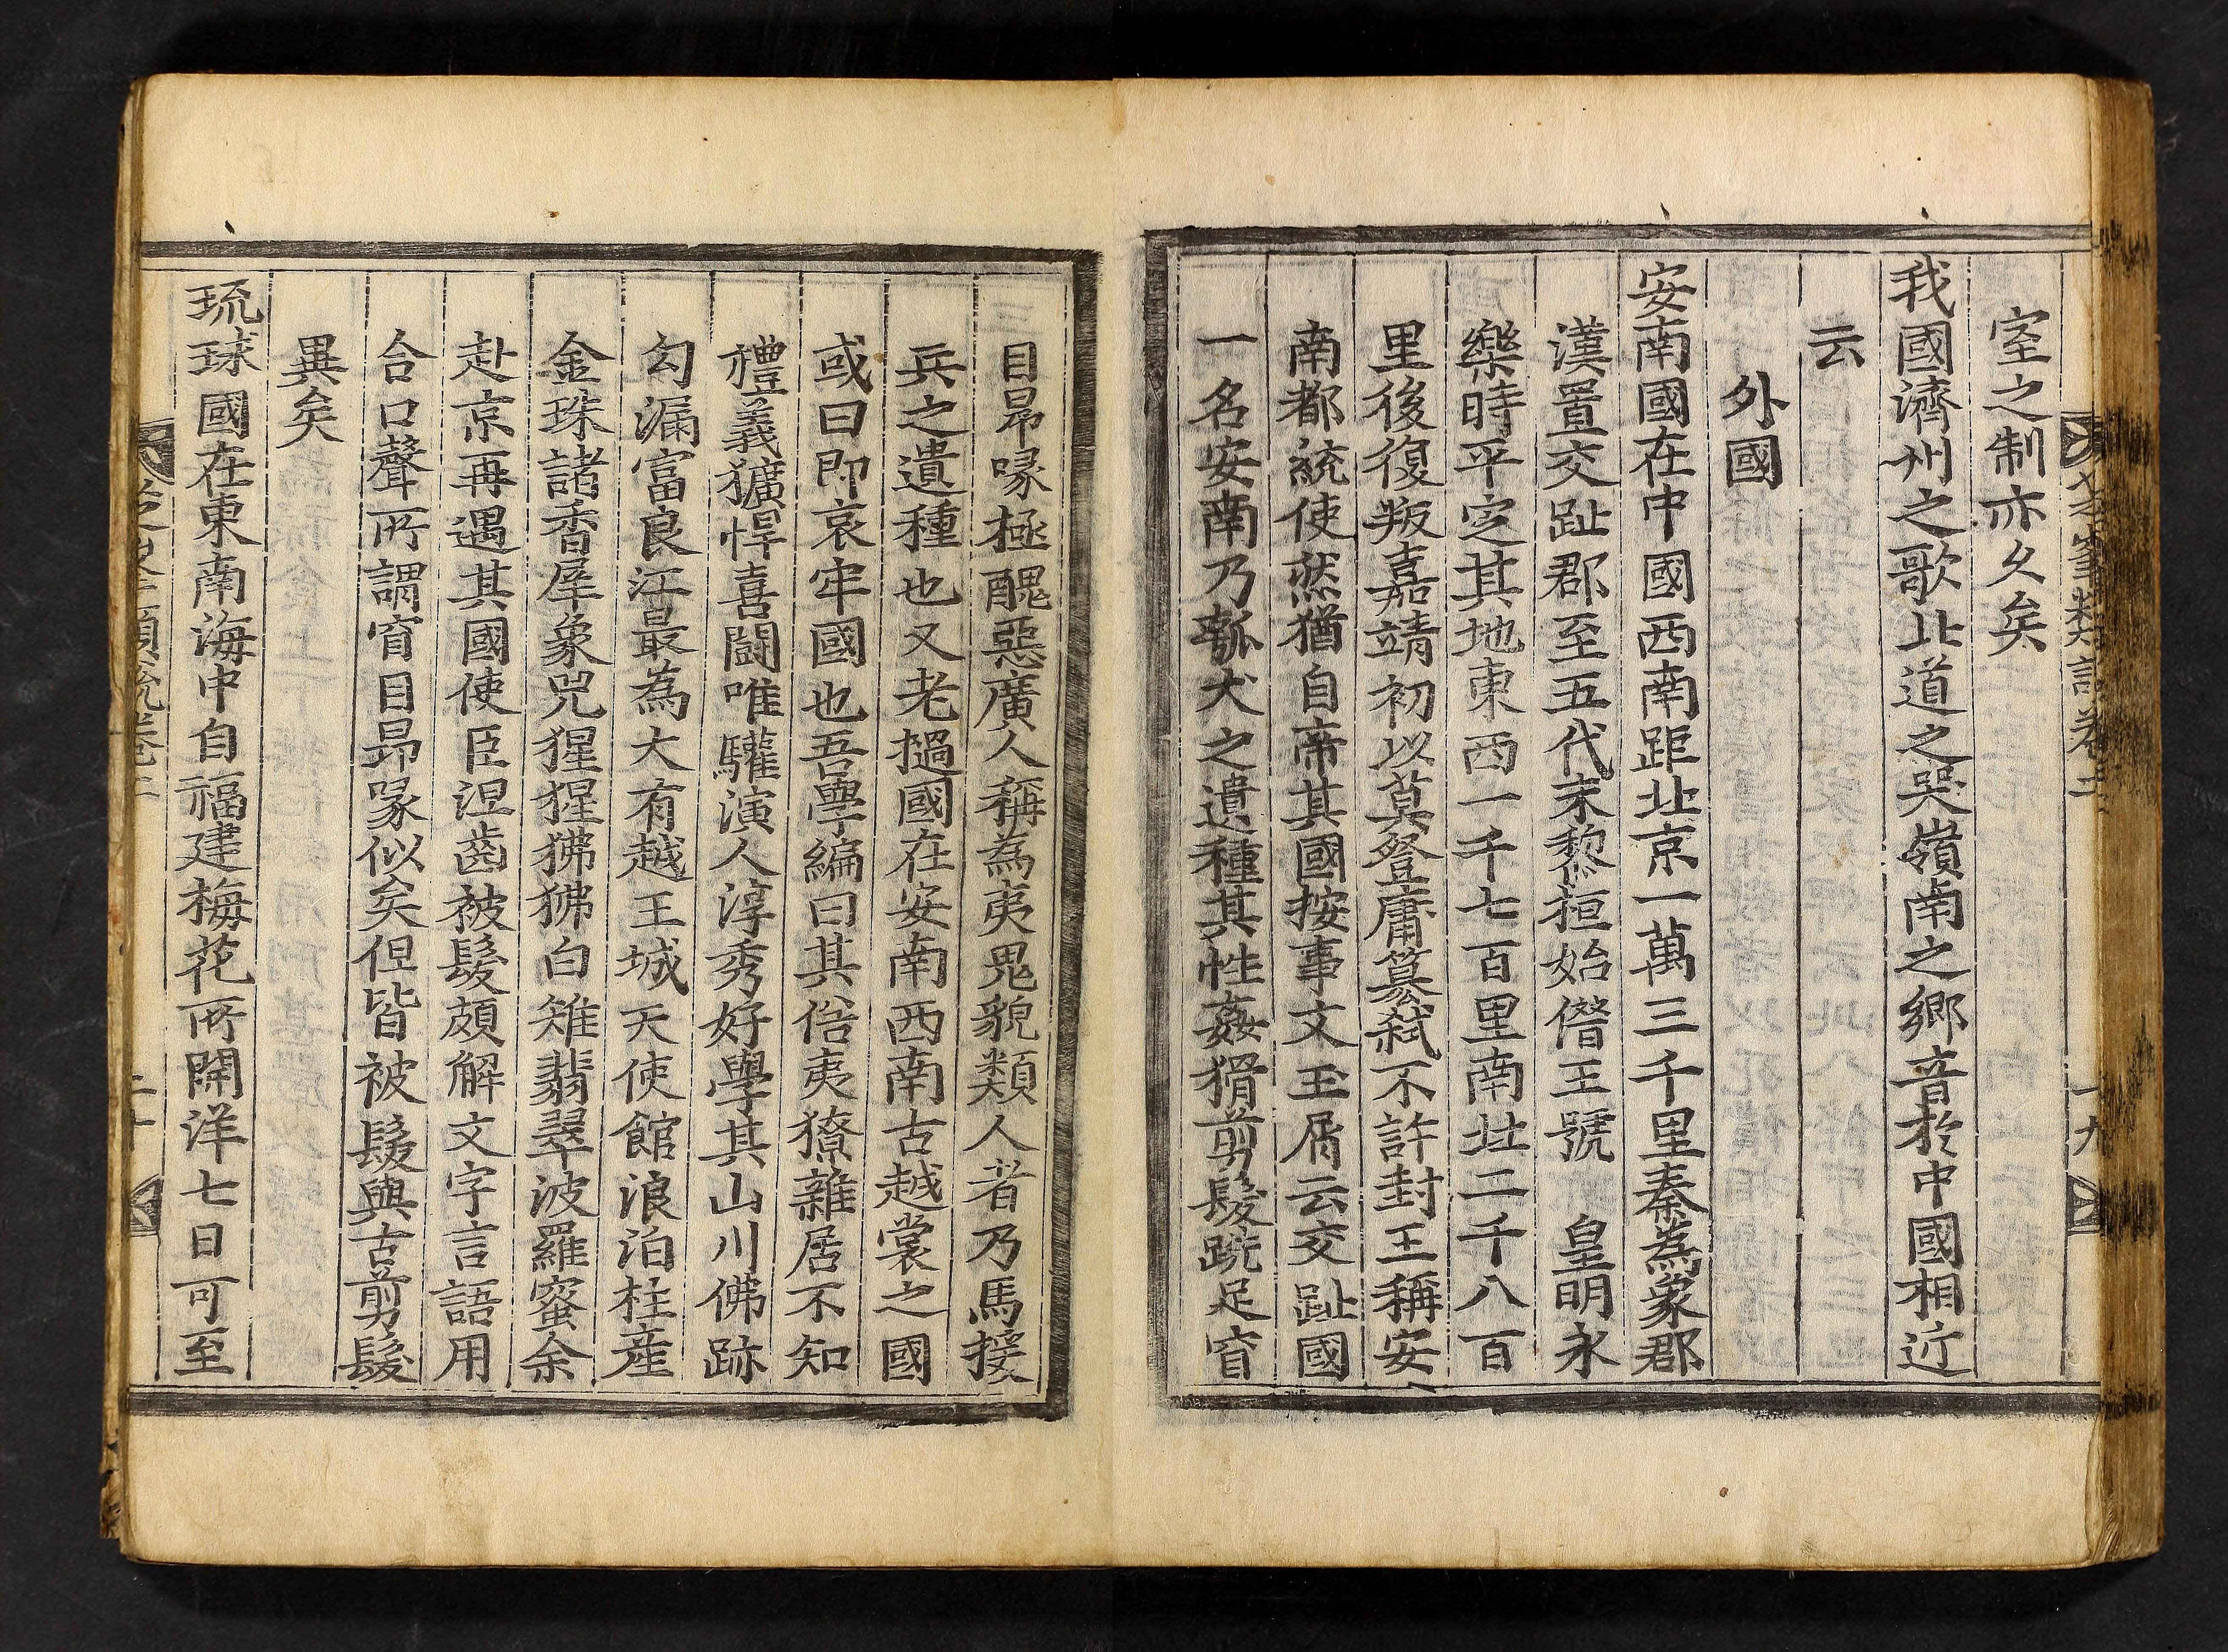 芝峯類說卷二
十九
室之制亦久矣
我國濟州之歌北道之哭嶺南之鄉音於中國相近
云
外國
安南國在中國西南距北京一萬三千里秦為象郡
漢置交趾郡至五代末黎桓始僭王號 皇明永
樂時平定其地東西一千七百里南北二千八百
里後復叛嘉靖初以莫登庸簒弑不許封王稱安
南都統使然猶自帝其國按事文玉屑云交趾國
一名安南乃瓠犬之遺種其性姦猾剪髮跣足窅
目昻喙極醜惡廣人稱為夷鬼貌類人者乃馬援
兵之遺種也又老撾國在安南西南古越裳之國
或曰即哀牢國也吾學編曰其俗夷獠雜居不知
禮義獷悍喜鬪唯驩演人淳秀好學其山川佛跡
勾漏富良江最為大有越王城天使館浪泊柱產
金珠諸香犀象兕猩猩狒狒白雉翡翠波羅蜜余
赴京再遇其國使臣涅齒被髮頗解文字言語用
合口聲所謂窅目昻喙似矣但皆被髮與古剪髮
異矣
琉球國在東南海中自福建梅花所開洋七日可至
芝峯類說卷二
二十